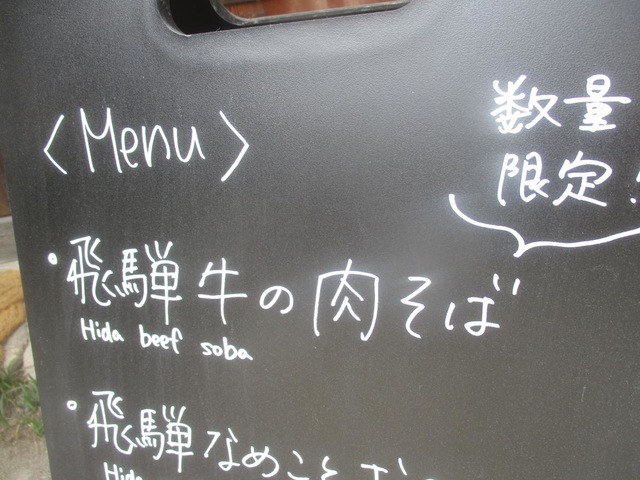 〈Menu〉
数量
限定!
・飛騨牛の肉そば
Hida beef soba
・飛騨なめこ
Hida